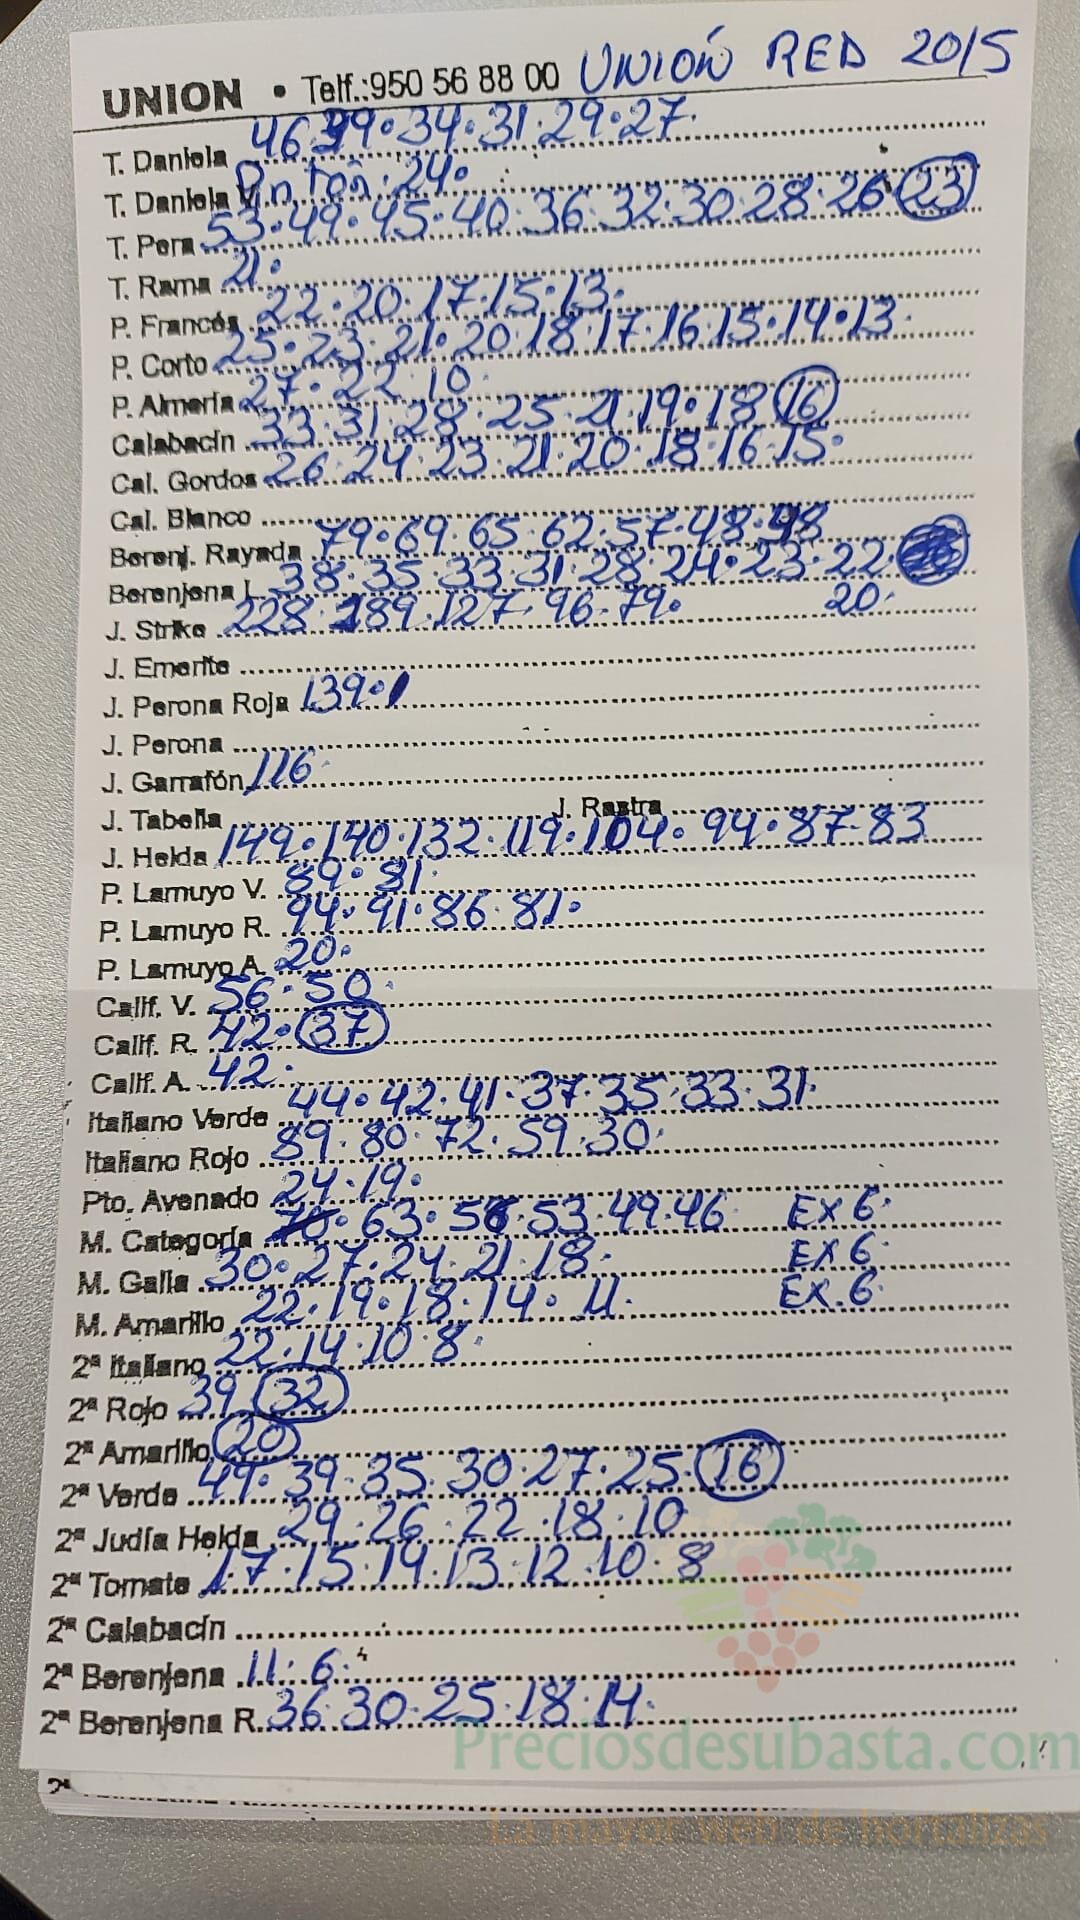 UNION • Telf.:950 56 88 00 UNIÓN RED 2015
T. Daniela 46·39·34·31·29·27·
T. Daniela V. Pinton·24·
T. Pera 53·49·45·40·36·32·30·28·26·23
T. Rama 21·
P. Francés 22·20·17·15·13·
P. Corto 25·23·21·20·18·17·16·15·14·13·
P. Almería 27·22·10·
Calabacín 33·31·28·25·21·19·18 16
Cal. Gordos 26·24·23·21·20·18·16·15·
Cal. Blanco
Berenj. Rayada 79·69·65·62·57·48·
Berenjena L. 38·35·33·31·28·24·23·22·
20·
J. Strike 228·189·127·96·79·
J. Emerite
J. Perona Roja 139·
J. Perona
J. Garrafón 116·
J. Tabella J. Rastra
J. Helda 149·140·132·119·104·94·87·83
P. Lamuyo V. 89·81·
P. Lamuyo R. 94·91·86·81·
P. Lamuyo A. 20·
Calif. V. 56·50·
Calif. R. 42·37
Calif. A. 42·
Italiano Verde 44·42·41·37·35·33·31·
Italiano Rojo 89·80·72·59·30·
Pto. Avenado 24·19·
M. Categoría 70·63·56·53·49·46 EX 6·
M. Galia 30·27·24·21·18· EX 6·
M. Amarillo 22·19·18·14·11· EX.6·
2ª Italiano 22·14·10·8·
2ª Rojo 39 32
2ª Amarillo 20
2ª Verde 49·39·35·30·27·25·16
2ª Judía Helda 29·26·22·18·10
2ª Tomate 17·15·14·13·12·10·8
2ª Calabacín
2ª Berenjena 11·6·
2ª Berenjena R. 36·30·25·18·14·
Preciosdesubasta.com
La mayor web de hortalizas